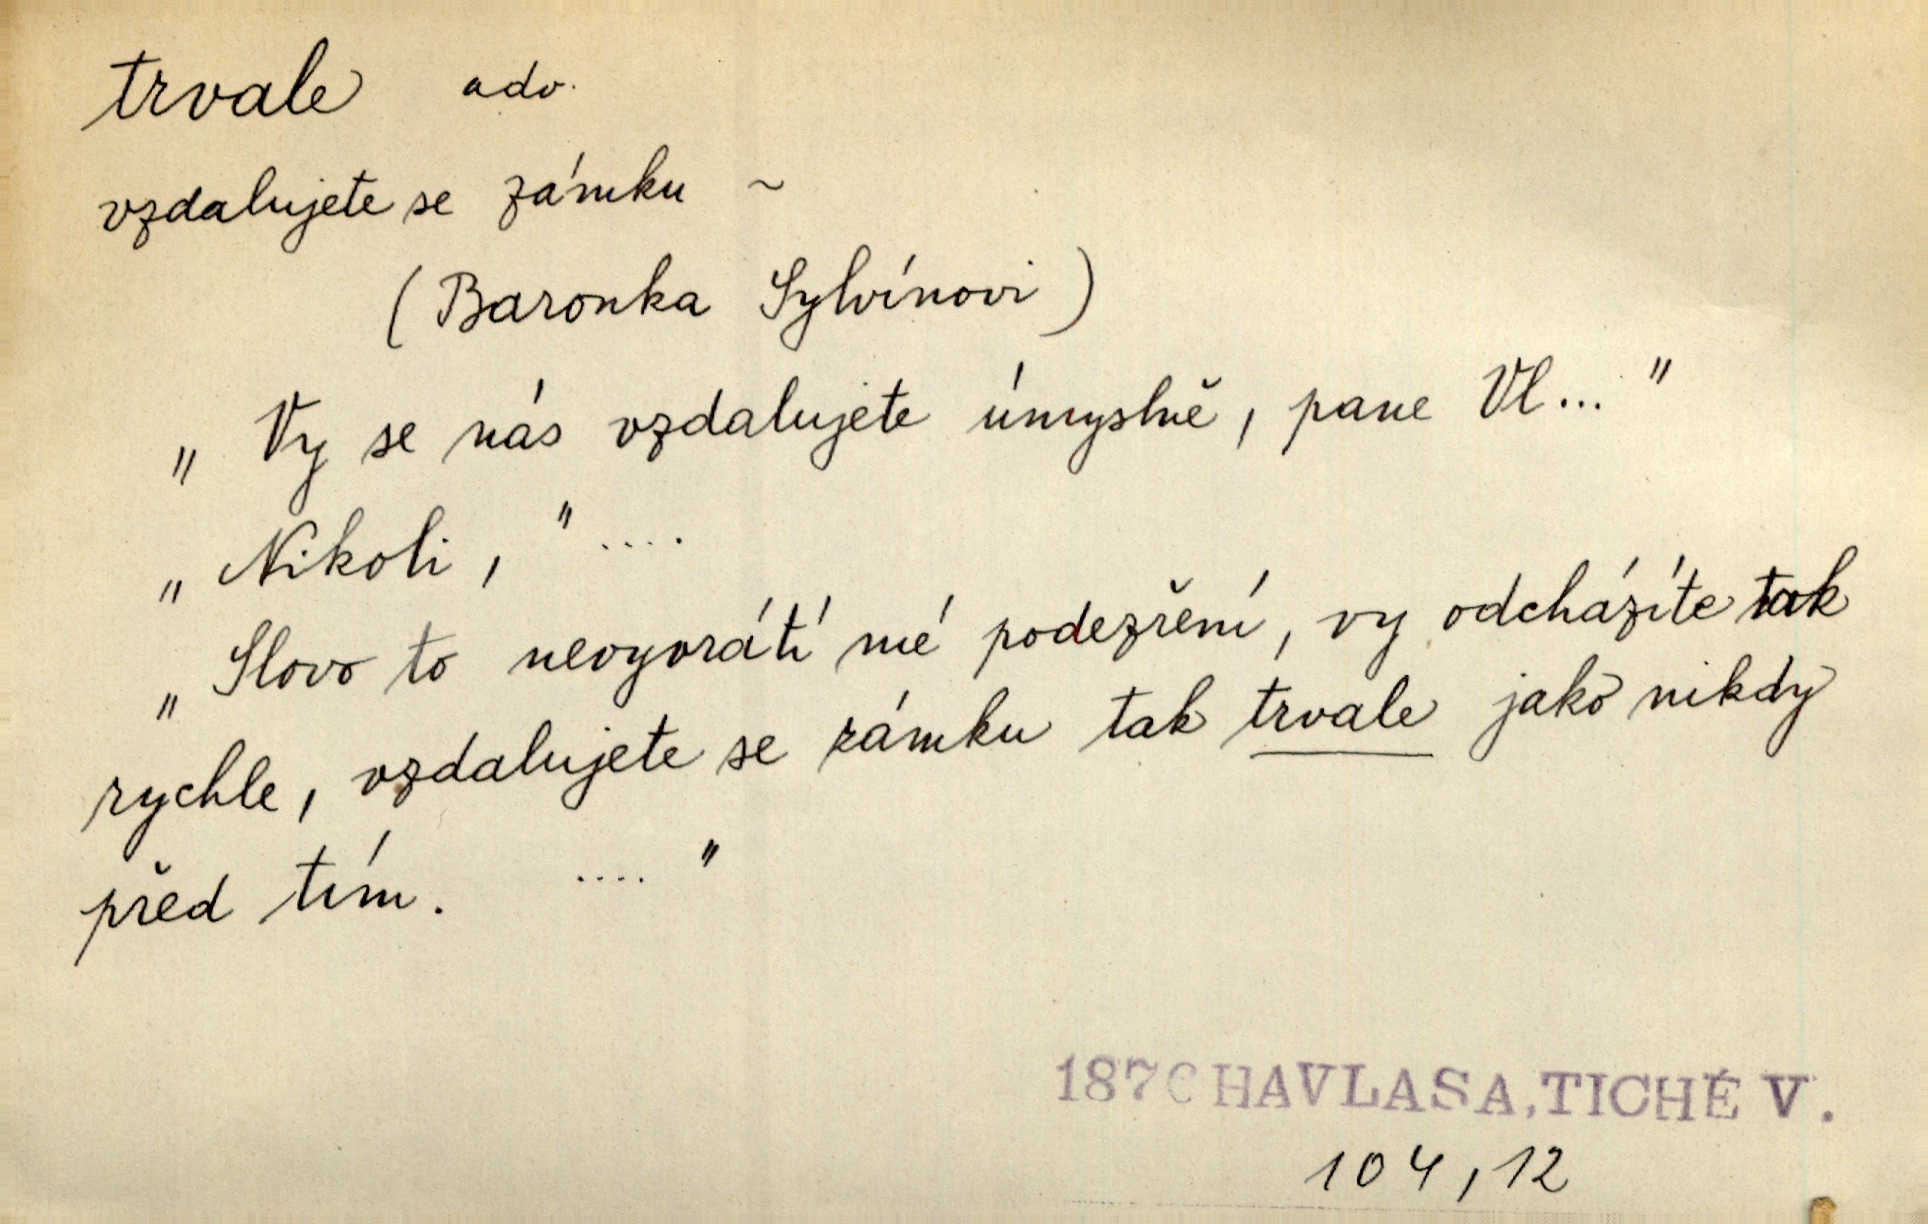 trvale adv.
vzdalujete se zámku ~
(Baronka Sylvínovi)
„Vy se nás vzdalujete úmyslně, pane Vl..."
„Nikoli," ....
„Slovo to nevyvrátí mé podezření, vy odcházíte tak
rychle, vzdalujete se zámku tak trvale jako nikdy
před tím. ...."
1876 HAVLASA, TICHÉ V.
104, 12